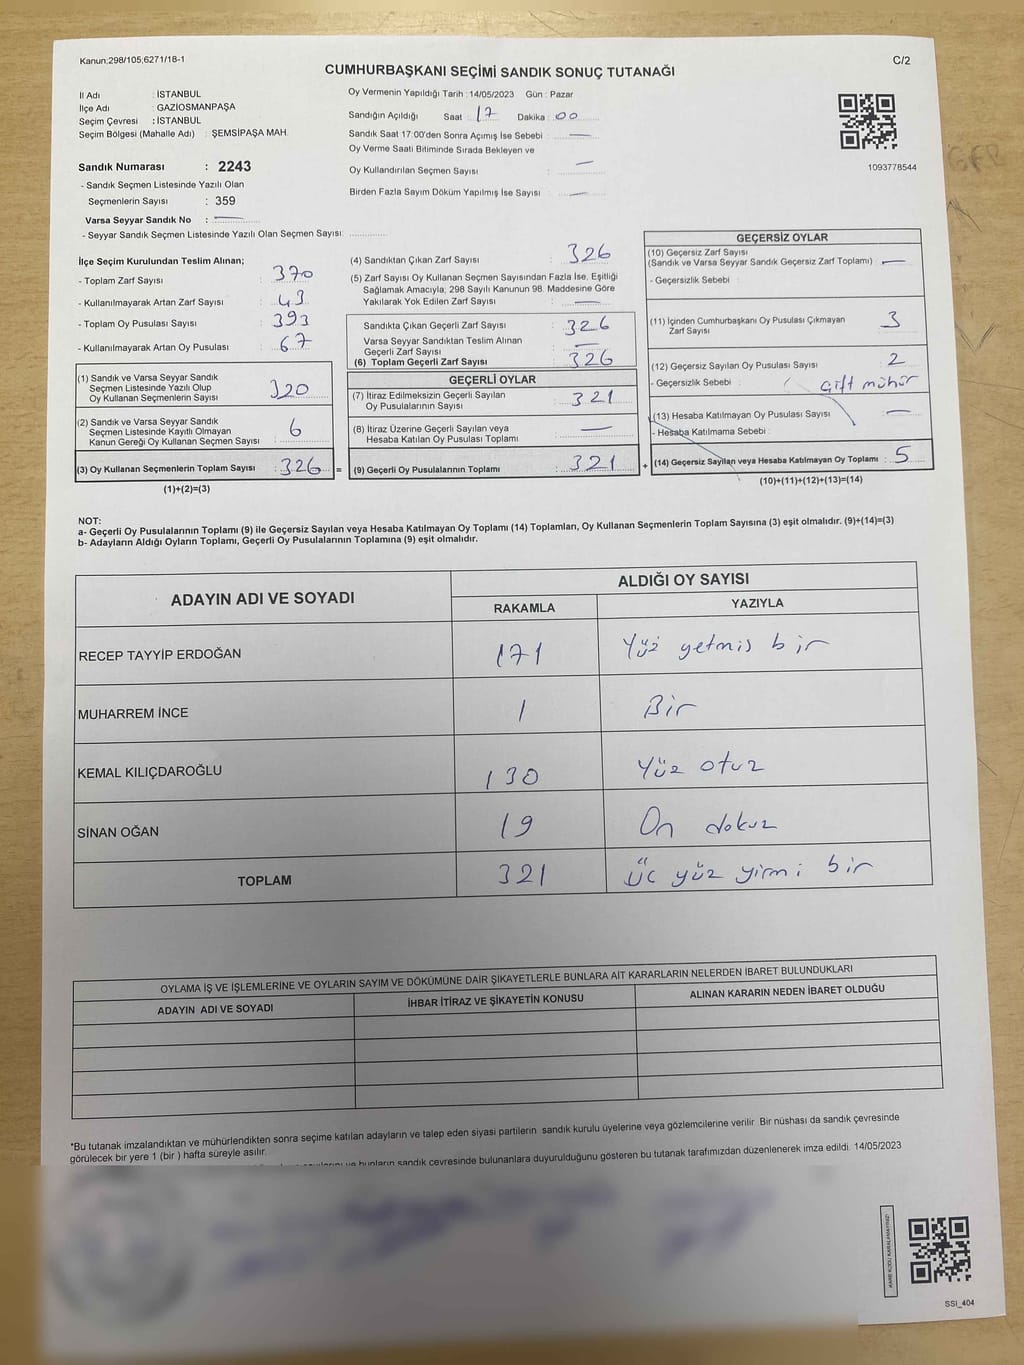 Kanun;298/105,6271/18-1
C/2
CUMHURBAŞKANI SEÇİMİ SANDIK SONUÇ TUTANAĞI
İl Adı : İSTANBUL
İlçe Adı : GAZİOSMANPAŞA
Seçim Çevresi : İSTANBUL
Seçim Bölgesi (Mahalle Adı) : ŞEMSİPAŞA MAH.
Sandık Numarası : 2243
- Sandık Seçmen Listesinde Yazılı Olan
Seçmenlerin Sayısı : 359
Varsa Seyyar Sandık No : —
- Seyyar Sandık Seçmen Listesinde Yazılı Olan Seçmen Sayısı:
Oy Vermenin Yapıldığı Tarih : 14/05/2023 Gün : Pazar
Sandığın Açıldığı Saat : 17 Dakika : 00
Sandık Saat 17:00'den Sonra Açımış İse Sebebi : —
Oy Verme Saati Bitiminde Sırada Bekleyen ve
Oy Kullandırılan Seçmen Sayısı : —
Birden Fazla Sayım Döküm Yapılmış İse Sayısı : —
1093778544
İlçe Seçim Kurulundan Teslim Alınan;
- Toplam Zarf Sayısı : 370
- Kullanılmayarak Artan Zarf Sayısı : 43
- Toplam Oy Pusulası Sayısı : 393
- Kullanılmayarak Artan Oy Pusulası : 67
(1) Sandık ve Varsa Seyyar Sandık
Seçmen Listesinde Yazılı Olup
Oy Kullanan Seçmenlerin Sayısı : 320
(2) Sandık ve Varsa Seyyar Sandık
Seçmen Listesinde Kayıtlı Olmayan
Kanun Gereği Oy Kullanan Seçmen Sayısı : 6
(3) Oy Kullanan Seçmenlerin Toplam Sayısı : 326 =
(1)+(2)=(3)
(4) Sandıktan Çıkan Zarf Sayısı : 326
(5) Zarf Sayısı Oy Kullanan Seçmen Sayısından Fazla İse, Eşitliği
Sağlamak Amacıyla; 298 Sayılı Kanunun 98. Maddesine Göre
Yakılarak Yok Edilen Zarf Sayısı : —
Sandıkta Çıkan Geçerli Zarf Sayısı : 326
Varsa Seyyar Sandıktan Teslim Alınan
Geçerli Zarf Sayısı : —
(6) Toplam Geçerli Zarf Sayısı : 326
GEÇERLİ OYLAR
(7) İtiraz Edilmeksizin Geçerli Sayılan
Oy Pusulalarının Sayısı : 321
(8) İtiraz Üzerine Geçerli Sayılan veya
Hesaba Katılan Oy Pusulası Toplamı : —
(9) Geçerli Oy Pusulalarının Toplamı : 321 +
GEÇERSİZ OYLAR
(10) Geçersiz Zarf Sayısı
(Sandık ve Varsa Seyyar Sandık Geçersiz Zarf Toplamı) : —
- Geçersizlik Sebebi :
(11) İçinden Cumhurbaşkanı Oy Pusulası Çıkmayan
Zarf Sayısı : 3
(12) Geçersiz Sayılan Oy Pusulası Sayısı : 2
- Geçersizlik Sebebi : Çift mühür
(13) Hesaba Katılmayan Oy Pusulası Sayısı : —
- Hesaba Katılmama Sebebi :
(14) Geçersiz Sayılan veya Hesaba Katılmayan Oy Toplamı : 5
(10)+(11)+(12)+(13)=(14)
NOT:
a- Geçerli Oy Pusulalarının Toplamı (9) ile Geçersiz Sayılan veya Hesaba Katılmayan Oy Toplamı (14) Toplamları, Oy Kullanan Seçmenlerin Toplam Sayısına (3) eşit olmalıdır. (9)+(14)=(3)
b- Adayların Aldığı Oyların Toplamı, Geçerli Oy Pusulalarının Toplamına (9) eşit olmalıdır.
ADAYIN ADI VE SOYADI
ALDIĞI OY SAYISI
RAKAMLA YAZIYLA
RECEP TAYYİP ERDOĞAN 171 Yüz yetmis bir
MUHARREM İNCE 1 Bir
KEMAL KILIÇDAROĞLU 130 Yüz otuz
SİNAN OĞAN 19 On dokuz
TOPLAM 321 üc yüz yirmi bir
OYLAMA İŞ VE İŞLEMLERİNE VE OYLARIN SAYIM VE DÖKÜMÜNE DAİR ŞİKAYETLERLE BUNLARA AİT KARARLARIN NELERDEN İBARET BULUNDUKLARI
ADAYIN ADI VE SOYADI İHBAR İTİRAZ VE ŞİKAYETİN KONUSU ALINAN KARARIN NEDEN İBARET OLDUĞU
*Bu tutanak imzalandıktan ve mühürlendikten sonra seçime katılan adayların ve talep eden siyasi partilerin sandık kurulu üyelerine veya gözlemcilerine verilir. Bir nüshası da sandık çevresinde
görülecek bir yere 1 (bir ) hafta süreyle asılır.
bunların sandık çevresinde bulunanlara duyurulduğunu gösteren bu tutanak tarafımızdan düzenlenerek imza edildi. 14/05/2023
KARE KODU KARALAMAYINIZ!
SSI_404